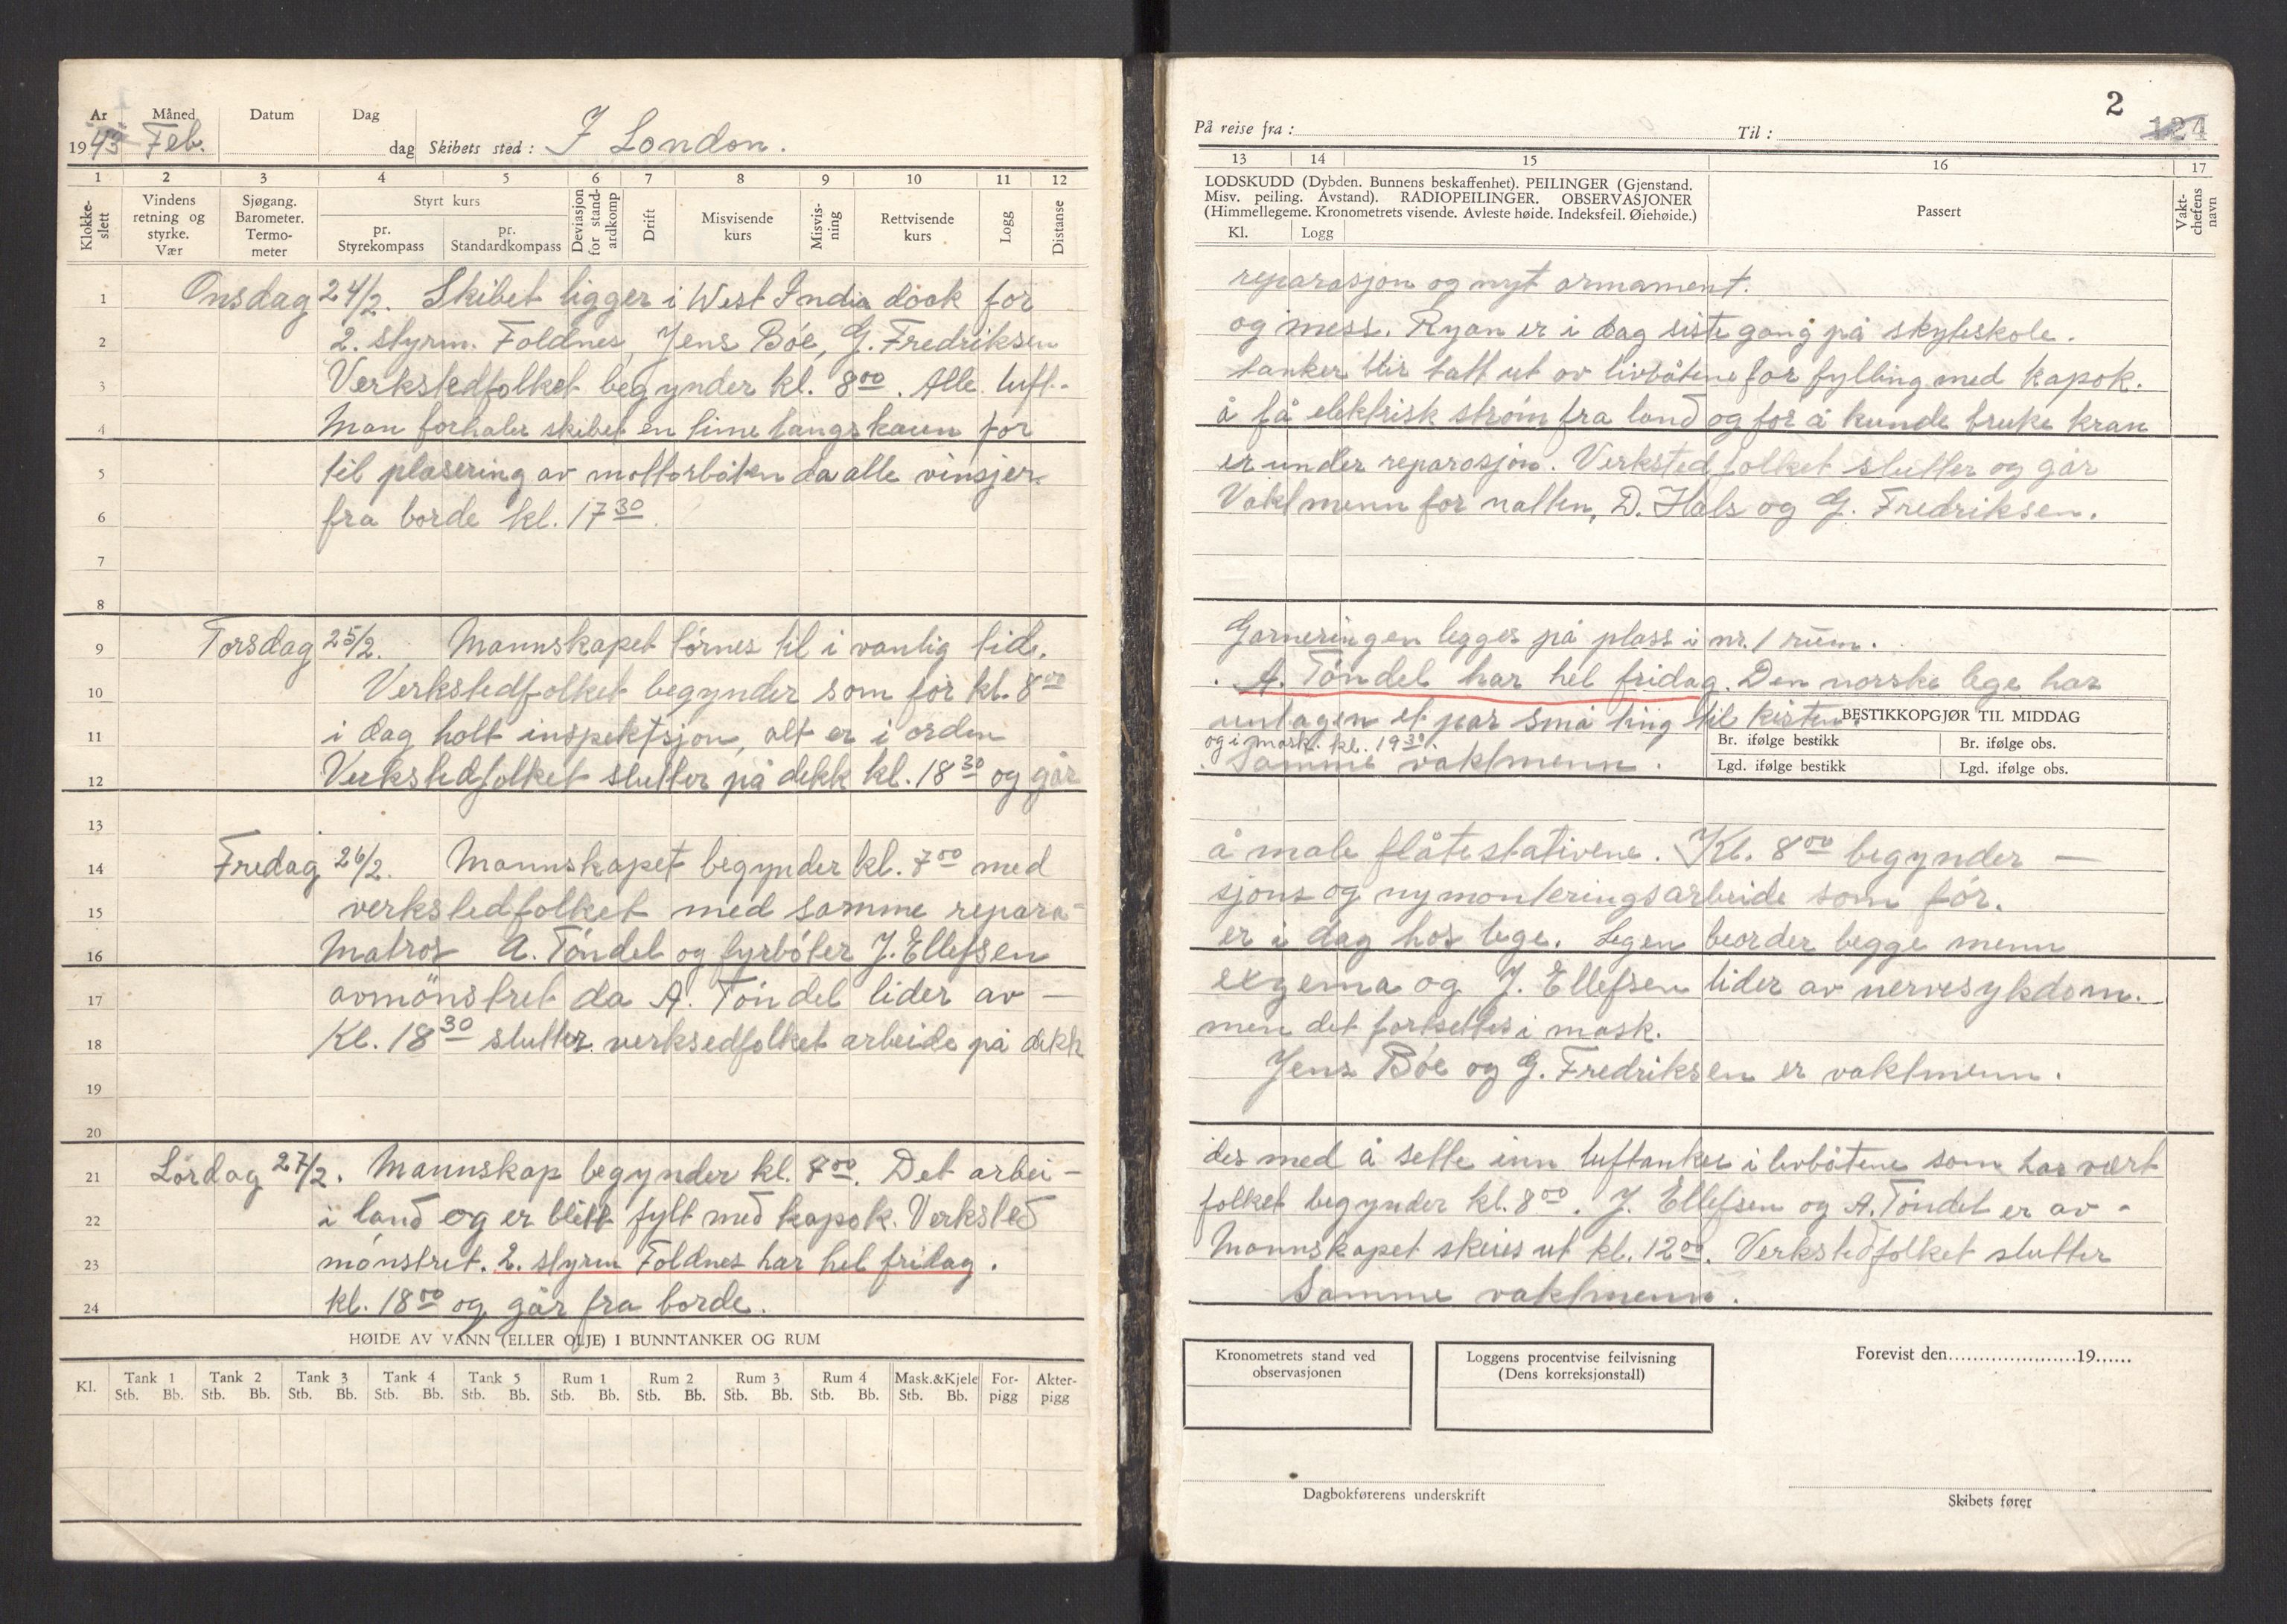 År
Måned
Datum
Dag
1943 Feb.
dag Skibets sted: I London.
1 2 3 4 5 6 7 8 9 10 11 12
Klokke-slett
Vindens retning og styrke. Vær
Sjøgang. Barometer. Termo-meter
Styrt kurs
pr. Styrekompass
pr. Standardkompass
Deviasjon for stand-ardkomp
Drift
Misvisende kurs
Misvis-ning
Rettvisende kurs
Logg
Distanse
1 Onsdag 24/2. Skibet ligger i West India dock for
2 2. styrm. Foldnes, Jens Böe, G. Fredriksen
3 Verkstedfolket begynder kl. 8 00. Alle luft-
4 Man forhaler skibet en time langs kaien for
5 til plasering av mottorbåten da alle vinsjer
6 fra borde kl. 17 30.
7
8
9 Torsdag 25/2. Mannskapet törnes til i vanlig tide.
10 Verkstedfolket begynder som för kl. 8 00
11 i dag holt inspektsjon, alt er i orden
12 Verkstedfolket slutter på dekk kl. 18 30 og går
13
14 Fredag 26/2. Mannskapet begynder kl. 7 00 med
15 verkstedfolket med samme repara-
16 Matros A. Töndel og fyrböter J. Ellefsen
17 avmönstret da A. Töndel lider av —
18 Kl. 18 30 slutter verksedfolket arbeide på dekk
19
20
21 Lördag 27/2. Mannskap begynder kl. 7 00. Det arbei-
22 i land og er blitt fylt med kapok. Verksted
23 mönstret. 2. styrm Foldnes har hel fridag.
24 kl. 18 00 og går fra borde.
HØIDE AV VANN (ELLER OLJE) I BUNNTANKER OG RUM
Kl.
Tank 1 Tank 2 Tank 3 Tank 4 Tank 5 Rum 1 Rum 2 Rum 3 Rum 4 Mask.&Kjele For-pigg Akter-pigg
Stb. Bb. Stb. Bb. Stb. Bb. Stb. Bb. Stb. Bb. Stb. Bb. Stb. Bb. Stb. Bb. Stb. Bb. Stb. Bb.
2
124
På reise fra:
Til:
13 14 15 16 17
LODSKUDD (Dybden. Bunnens beskaffenhet). PEILINGER (Gjenstand.
Misv. peiling. Avstand). RADIOPEILINGER. OBSERVASJONER
(Himmellegeme. Kronometrets visende. Avleste høide. Indeksfeil. Øiehøide.)
Kl. Logg
Passert
Vakt-chefens navn
reparasjon og nyt armament.
og mess. Ryan er i dag siste gang på skyteskole.
tanker blir tatt ut av livbåtene for fylling med kapok.
å få elektrisk ström fra land og for å kunde bruke kran
er under reparasjon. Verkstedfolket slutter og går
Vaktmenn for natten, D. Hals og G. Fredriksen.
Garneringen legges på plass i nr. 1 rum.
A. Töndel har hel fridag. Den norske lege har
untagen et par små ting til kisten.
BESTIKKOPGJØR TIL MIDDAG
og i mask. kl. 19 30.
Br. ifølge bestikk
Br. ifølge obs.
Samme vaktmenn.
Lgd. ifølge bestikk
Lgd. ifølge obs.
å male flåtestativene. Kl. 8 00 begynder —
sjons og nymonteringsarbeide som för.
er i dag hos lege. Legen beorder begge menn
exzema og J. Ellefsen lider av nervesykdom.
men det fortsettes i mask.
Jens Böe og G. Fredriksen er vaktmenn.
des med å sette inn luftanker i livbåtene som har vært
folket begynder kl. 8 00. J. Ellefsen og A. Töndel er av -
Mannskapet skeies ut kl. 12 00. Verkstedfolket slutter
Samme vaktmenn.
Kronometrets stand ved observasjonen
Loggens procentvise feilvisning
(Dens korreksjonstall)
Forevist den 19
Dagbokførerens underskrift
Skibets fører